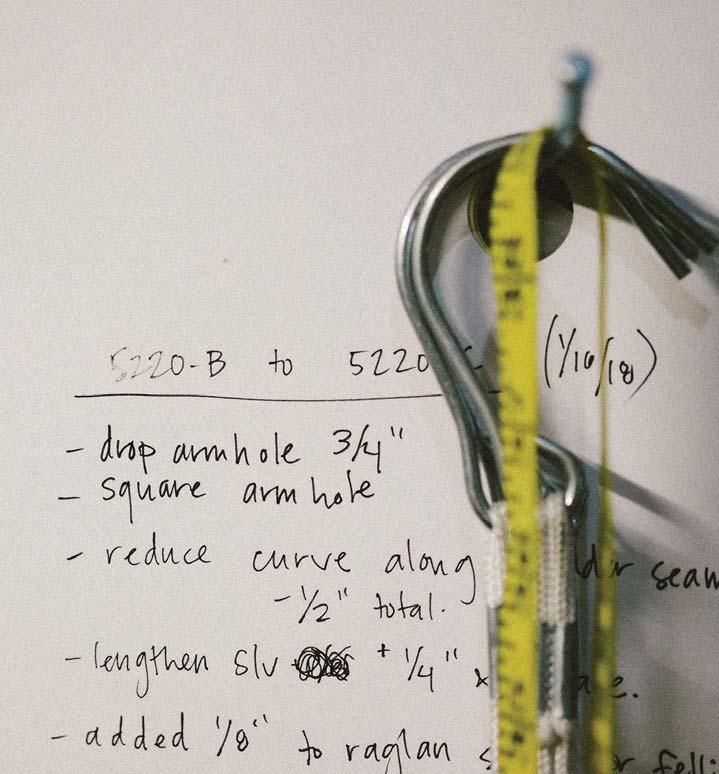 5220-B to 5220 (1/16/18)
- drop armhole 3/4"
- square armhole
- reduce curve along seam
- 1/2" total.
- lengthen slv + 1/4"
- added 1/8" to raglan